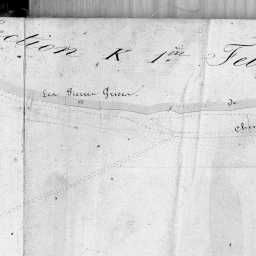 ection K 1re Feu
Les Pierres Grises.
de
che